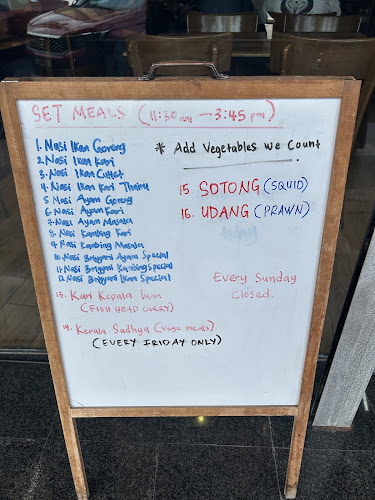 SET MEALS (11:30 am — 3:45 pm)
1. Nasi Ikan Goreng
2. Nasi Ikan Kari
3. Nasi Ikan Cutlet
4. Nasi Ikan Kari Thairu
5. Nasi Ayam Goreng
6. Nasi Ayam Kari
7. Nasi Ayam Masala
8. Nasi Kambing Kari
9. Nasi Kambing Masala
10. Nasi Briyani Ayam Special
11. Nasi Briyani Kambing Special
12. Nasi Briyani Ikan Special
13. Kari Kepala Ikan
(FISH HEAD CURRY)
14. Kerala Sadhya (Vege meals)
(EVERY FRIDAY ONLY)
* Add Vegetables We Count
15 SOTONG (SQUID)
16. UDANG (PRAWN)
Every Sunday
Closed.